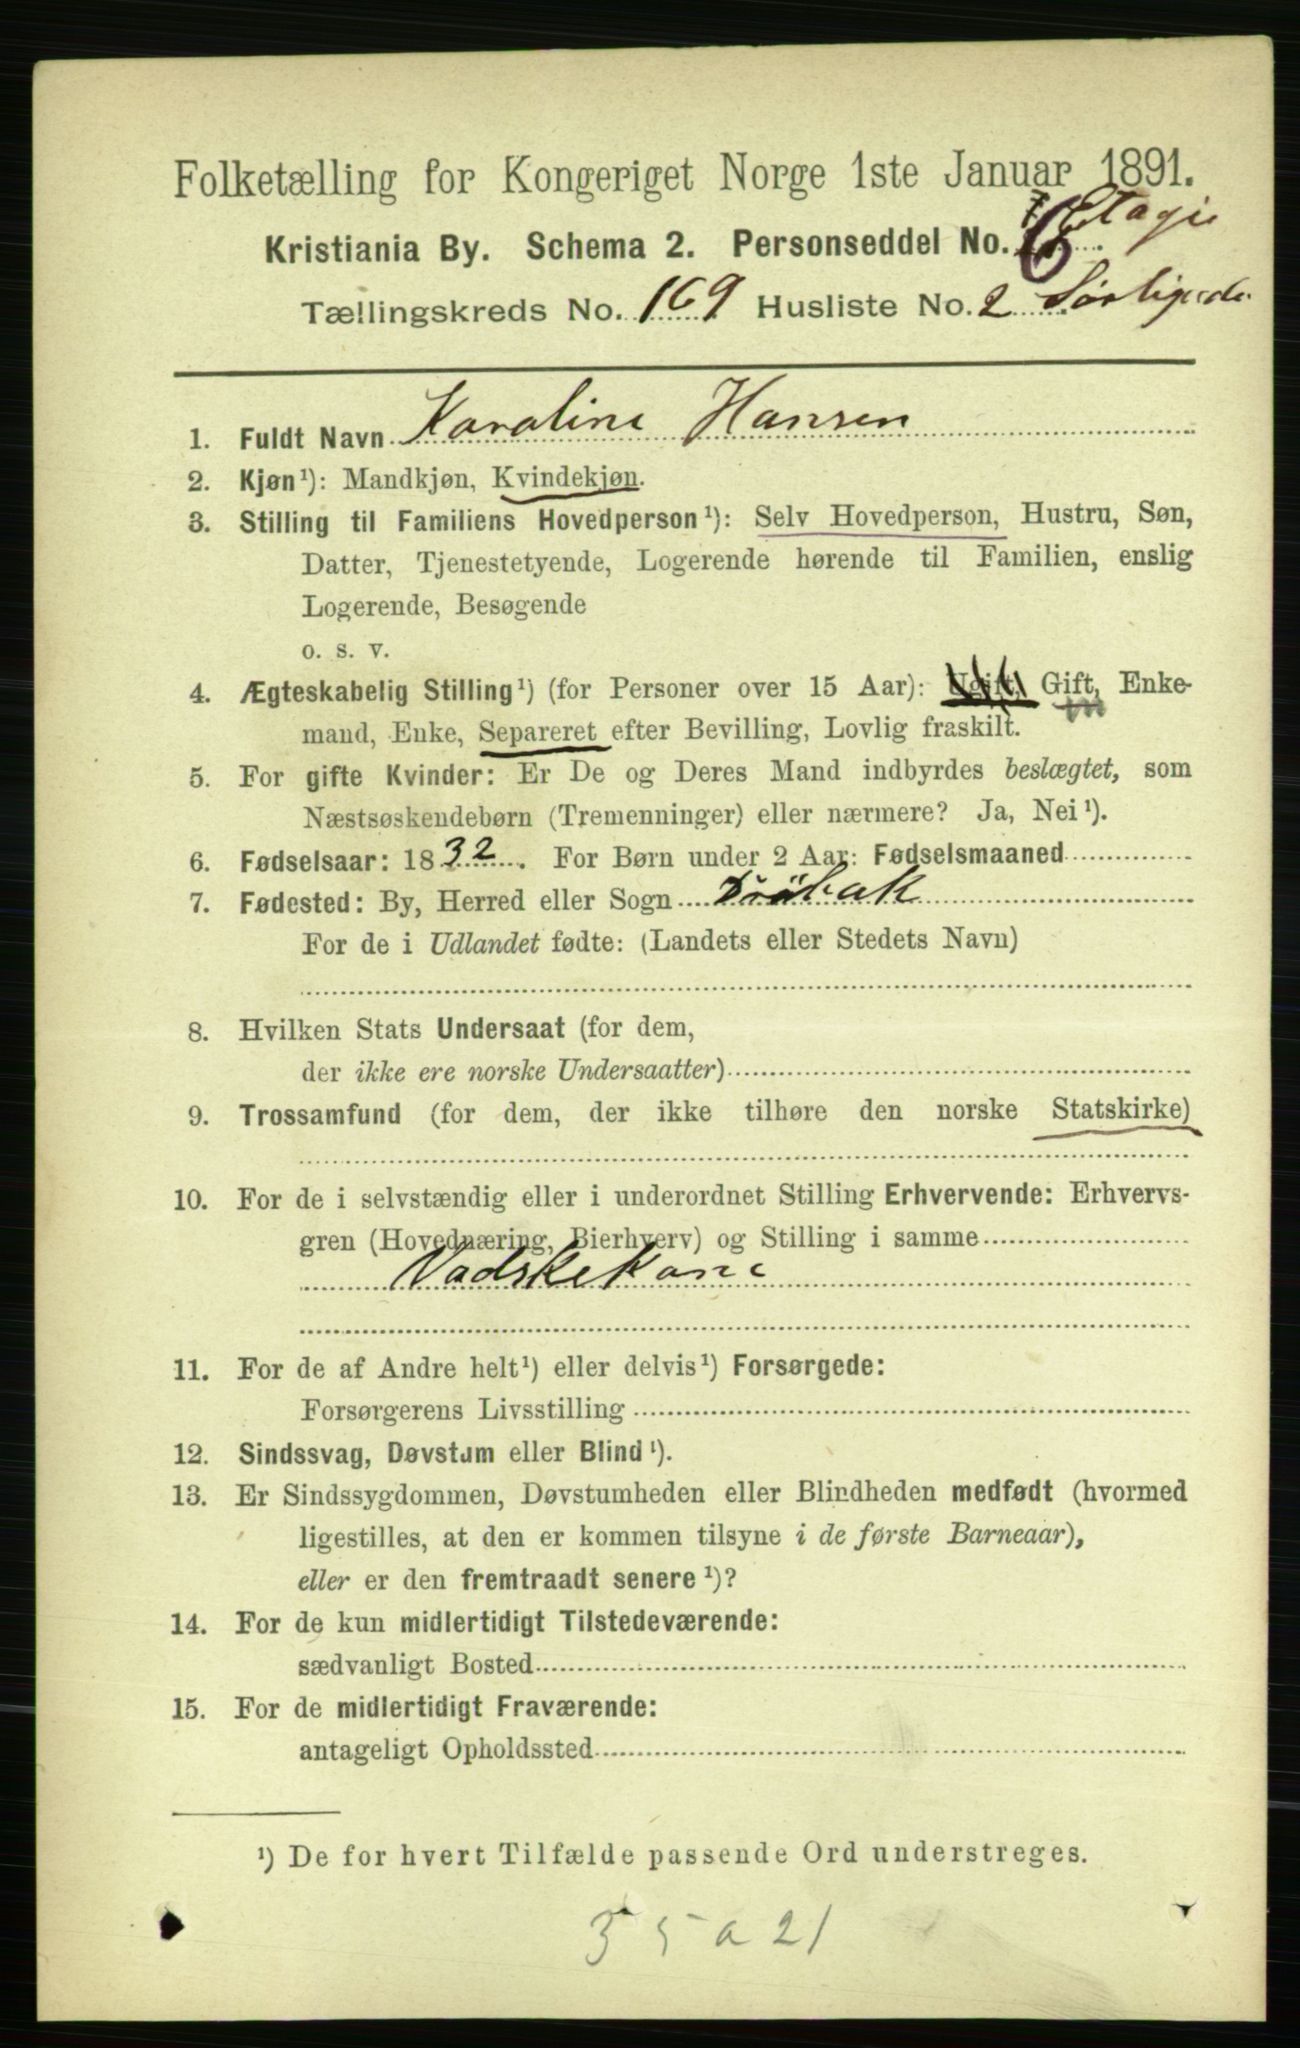 Folketælling for Kongeriget Norge 1ste Januar 1891.
Etage
Kristiania By. Schema 2. Personseddel No. 6
Tællingskreds No. 169 Husliste No. 2
1. Fuldt Navn Karoline Hansen
2. Kjøn¹): Mandkjøn, Kvindekjøn.
3. Stilling til Familiens Hovedperson¹): Selv Hovedperson, Hustru, Søn,
Datter, Tjenestetyende, Logerende hørende til Familien, enslig
Logerende, Besøgende
o. s. v.
4. Ægteskabelig Stilling¹) (for Personer over 15 Aar): Ugift, Gift, Enke-
mand, Enke, Separeret efter Bevilling, Lovlig fraskilt.
5. For gifte Kvinder: Er De og Deres Mand indbyrdes beslægtet, som
Næstsøskendebørn (Tremenninger) eller nærmere? Ja, Nei¹).
6. Fødselsaar: 1832. For Børn under 2 Aar: Fødselsmaaned
7. Fødested: By, Herred eller Sogn Dröbak
For de i Udlandet fødte: (Landets eller Stedets Navn)
8. Hvilken Stats Undersaat (for dem,
der ikke ere norske Undersaatter)
9. Trossamfund (for dem, der ikke tilhøre den norske Statskirke)
10. For de i selvstændig eller i underordnet Stilling Erhvervende: Erhvervs-
gren (Hovednæring, Bierhverv) og Stilling i samme
Vadskekone
11. For de af Andre helt¹) eller delvis¹) Forsørgede:
Forsørgerens Livsstilling
12. Sindssvag, Døvstum eller Blind¹).
13. Er Sindssygdommen, Døvstumheden eller Blindheden medfødt (hvormed
ligestilles, at den er kommen tilsyne i de første Barneaar),
eller er den fremtraadt senere¹)?
14. For de kun midlertidigt Tilstedeværende:
sædvanligt Bosted
15. For de midlertidigt Fraværende:
antageligt Opholdssted
¹) De for hvert Tilfælde passende Ord understreges.
35 a 21